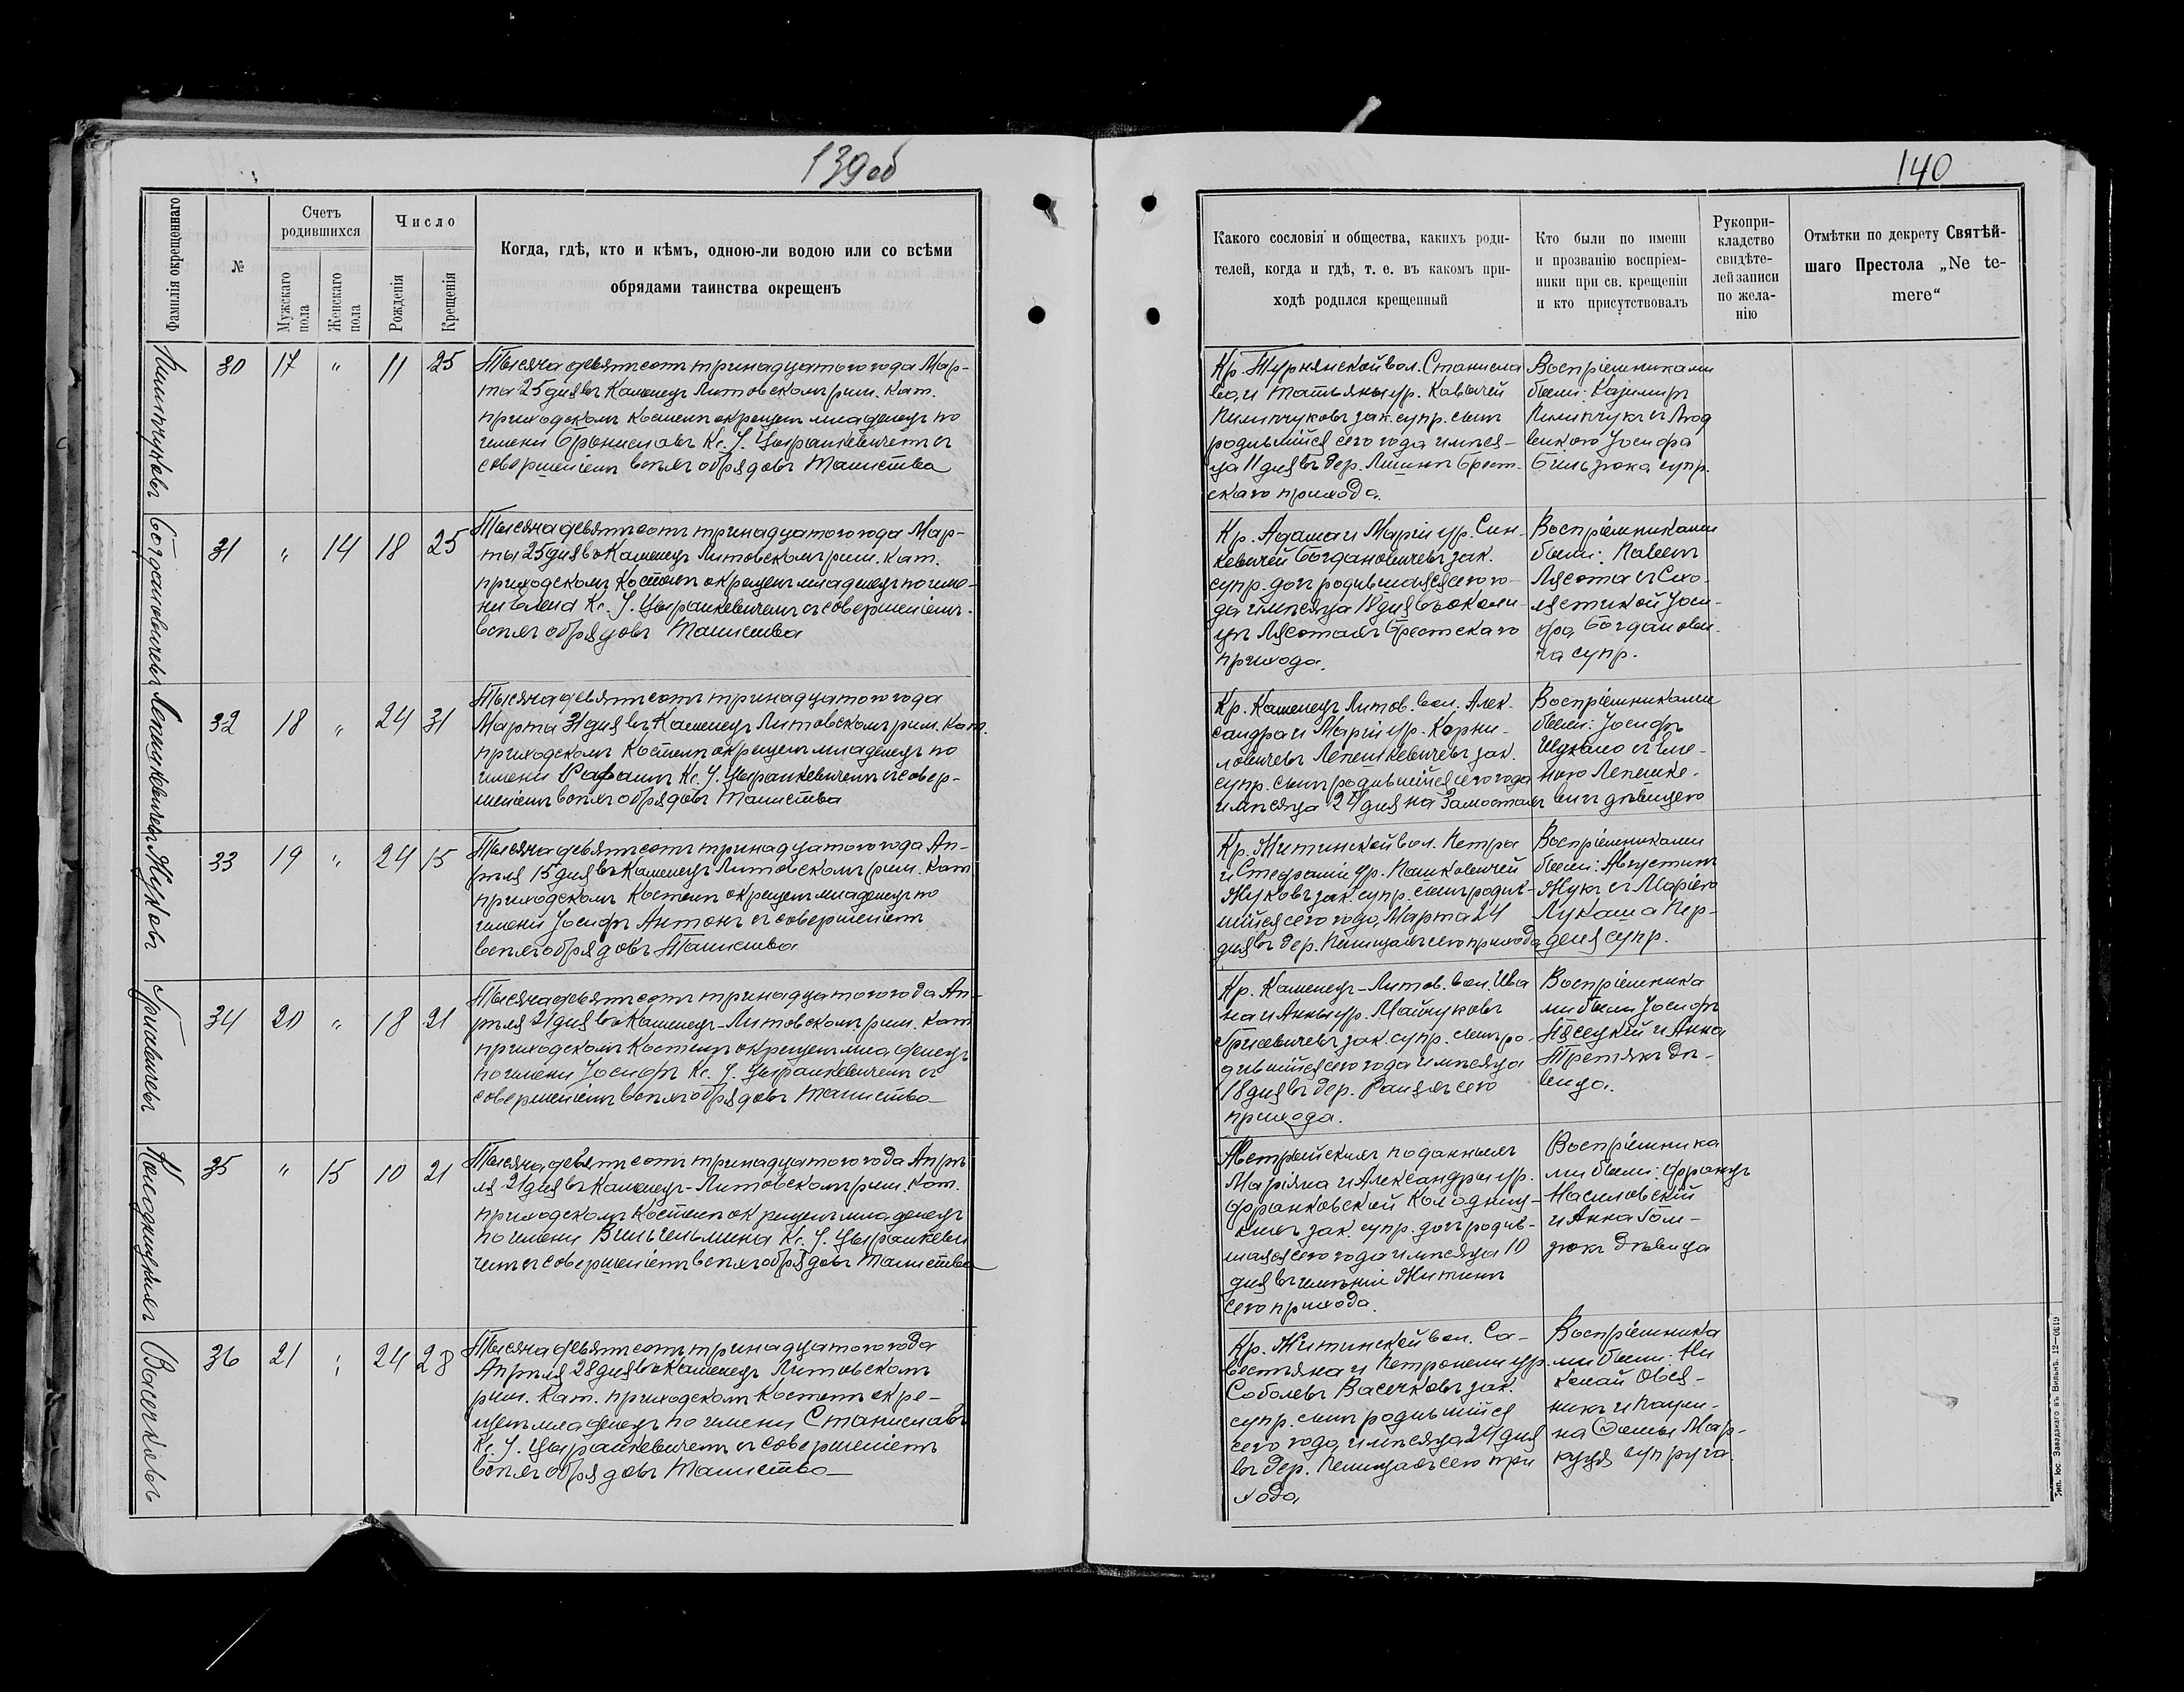 139 об
Фамилія окрещеннаго
№
Счетъ родившихся
Мужскаго пола
Женскаго пола
Число
Рожденія
Крещенія
Когда, гдѣ, кто и кѣмъ, одною-ли водою или со всѣми
обрядами таинства окрещенъ
Пилипчуковъ
30 17 " 11 25
Тысяча девятьсотъ тринадцатого года Мар-
та 25 дня въ Каменецъ Литовскомъ рим. кат.
приходскомъ костелѣ окрещенъ младенецъ по
имени Брониславъ Кс. І. Цыранкевичемъ съ
совершеніемъ всѣхъ обрядовъ Таинства
Богдановичевъ
31 " 14 18 25
Тысяча девятьсотъ тринадцатого года Мар-
та 25 дня въ Каменецъ Литовскомъ рим. кат.
приходскомъ Костелѣ окрещенъ младенецъ по име-
ни Елена Кс. І. Цыранкевичемъ съ совершеніемъ
всѣхъ обрядовъ Таинства
Лепешкевичевъ
32 18 " 24 31
Тысяча девятьсотъ тринадцатого года
Марта 31 дня въ Каменецъ Литовскомъ рим. кат.
приходскомъ Костелѣ окрещенъ младенецъ по
имени Рафаилъ Кс. І. Цыранкевичемъ съ совер-
шеніемъ всѣхъ обрядовъ Таинства
Жуковъ
33 19 " 24 15
Тысяча девятьсотъ тринадцатого года Ап-
рѣля 15 дня въ Каменецъ Литовскомъ рим. кат.
приходскомъ Костелѣ окрещенъ младенецъ по
имени Іосифъ Антонъ съ совершеніемъ
всѣхъ обрядовъ Таинства
Грисевичевъ
34 20 " 18 21
Тысяча девятьсотъ тринадцатого года Ап-
рѣля 21 дня въ Каменецъ-Литовскомъ рим. кат.
приходскомъ Костелѣ окрещенъ младенецъ
по имени Іосифъ Кс. І. Цыранкевичемъ съ
совершеніемъ всѣхъ обрядовъ Таинства
35 " 15 10 21
Тысяча девятьсотъ тринадцатого года Апрѣ-
ля 21 дня въ Каменецъ-Литовскомъ рим. кат.
приходскомъ Костелѣ окрещенъ младенецъ
по имени Вильгельмина Кс. І. Цыранкеви
чемъ съ совершеніемъ всѣхъ обрядовъ Таинства
Васечковъ
36 21 " 24 28
Тысяча девятьсотъ тринадцатого года
Апрѣля 28 дня въ Каменецъ Литовскомъ
рим. кат. приходскомъ Костелѣ окре-
щенъ младенецъ по имени Станиславъ
Кс. І. Цыранкевичемъ съ совершеніемъ
всѣхъ обрядовъ Таинства
140
Какого сословія и общества, какихъ роди-
телей, когда и гдѣ, т. е. въ какомъ при-
ходѣ родился крещенный
Кто были по имени
и прозванію воспріем-
ники при св. крещеніи
и кто присутствовалъ
Рукопри-
кладство
свидѣте-
лей записи
по жела-
нію
Отмѣтки по декрету Святѣй-
шаго Престола „Ne te-
mere“
Кр. Турнянской вол. Станисла
ва и Татьяны ур.
Пилипчуковъ зак. супр. сынъ
родившійся сего года и мѣся-
ца 11 дня въ дер. Брест-
скаго прихода.
Воспріемниками
были: Казимиръ
Пилипчукъ и
Іосифа
супр.
Кр. Адама и Маріи ур. Син-
кевичей Богдановичевъ зак.
супр. дочь родившаяся сего го-
да и мѣсяца 18 дня въ околи-
цѣ Лясотахъ Брестскаго
прихода.
Воспріемниками
были: Павелъ
Лясота съ Схо-
ластикой Іоси-
фа Богданови-
ча супр.
Кр. Каменец Литов. вол. Алек-
сандра и Маріи ур. Корни-
ловичевъ Лепешкевичевъ зак.
супр. сынъ родившійся сего года
и мѣсяца 24 дня на Замостахъ
Воспріемниками
были: Іосифъ
Лепешке-
вичъ дѣвицею
Кр. Житинской вол. Петра
и Стефаніи ур. Пашкевичей
Жуковъ зак. супр. сынъ родив-
шійся сего года Марта 24
дня въ дер. Пелищахъ сего прихода
Воспріемниками
были: Августинъ
Жукъ съ Маріею
Лукаша Пер-
супр.
Кр. Каменец-Литов. вол. Ива
на и Анны ур. Майчуковъ
Грисевичевъ зак. супр. сынъ ро-
дившійся сего года и мѣсяца
18 дня въ дер. сего
прихода.
Воспріемника
ми были Іосифъ
и Анна
Третякъ дѣ-
вица.
Австрійскихъ поданныхъ
Маріяна и Александры ур.
Франковской
зак. супр. дочь родив-
шаяся сего года и мѣсяца 10
дня въ имѣніи Житинѣ
сего прихода.
Воспріемника
ми были: Францъ
Насиловскій
и Анна Гом-
зюкъ дѣвица
Кр. Житинской вол. Са-
вестьяна и Петронели ур.
Соболевъ Васечковъ зак.
супр. сынъ родившійся
сего года и мѣсяца 24 дня
въ дер. Пелищахъ сего при
хода,
Воспріемника
ми были: Ни
колай Овся-
никъ и Паули-
на Фомы Мар-
супруга.
Тип. Іос. Завадзкаго въ Вильнѣ. 12—0619